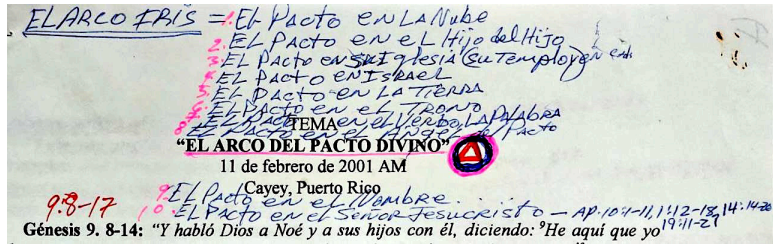 EL ARCO IRIS = 1. EL PACTO EN LA Nube
2. EL PACTO EN EL Hijo del Hijo
3. EL PACTO EN SU Iglesia (su Templo) y en
4. EL PACTO EN ISRAEL
5. EL PACTO EN LA TIERRA
6. EL PACTO EN EL TRONO
7. EL PACTO EN EL VERBO, LA PALABRA
8. EL PACTO EN EL ANGEL del PACTO
TEMA
“EL ARCO DEL PACTO DIVINO”
11 de febrero de 2001 AM
Cayey, Puerto Rico
9. EL PACTO EN EL NOMBRE....
10. EL PACTO EN EL SEÑOR JESUCRISTO – AP. 10:1-11, 1:12-18, 14:14-20
19:11-21
9:8-17
Génesis 9. 8-14: “Y habló Dios a Noé y a sus hijos con él, diciendo: ⁹He aquí que yo